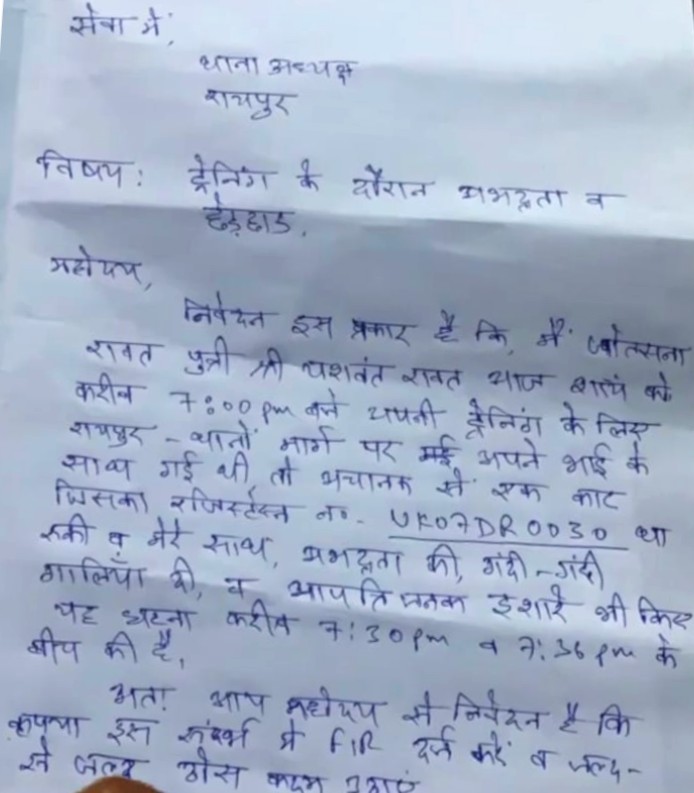 सेवा में,
थाना अध्यक्ष
रायपुर
विषय: ट्रेनिंग के दौरान अभद्रता व
छेड़छाड़.
महोदय,
निवेदन इस प्रकार है कि, मैं ज्योत्सना
रावत पुत्री श्री यशवंत रावत आज शाम को
करीब 7:00 pm बजे अपनी ट्रेनिंग के लिए
रायपुर - थानों मार्ग पर अपने भाई के
साथ गई थी, तो अचानक से एक कार
जिसका रजिस्टेशन न०- UK07DR0030 था
रुकी व मेरे साथ, अभद्रता की, गंदी-गंदी
गालियाँ दी, व आपत्तिजनक इशारे भी किए
यह घटना करीब 7:30 pm व 7:36 pm के
बीच की है,
अतः आप महोदय से निवेदन है कि
कृपया इस संदर्भ मे FIR दर्ज करें व जल्द-
से जल्द ठोस कदम उठाएं